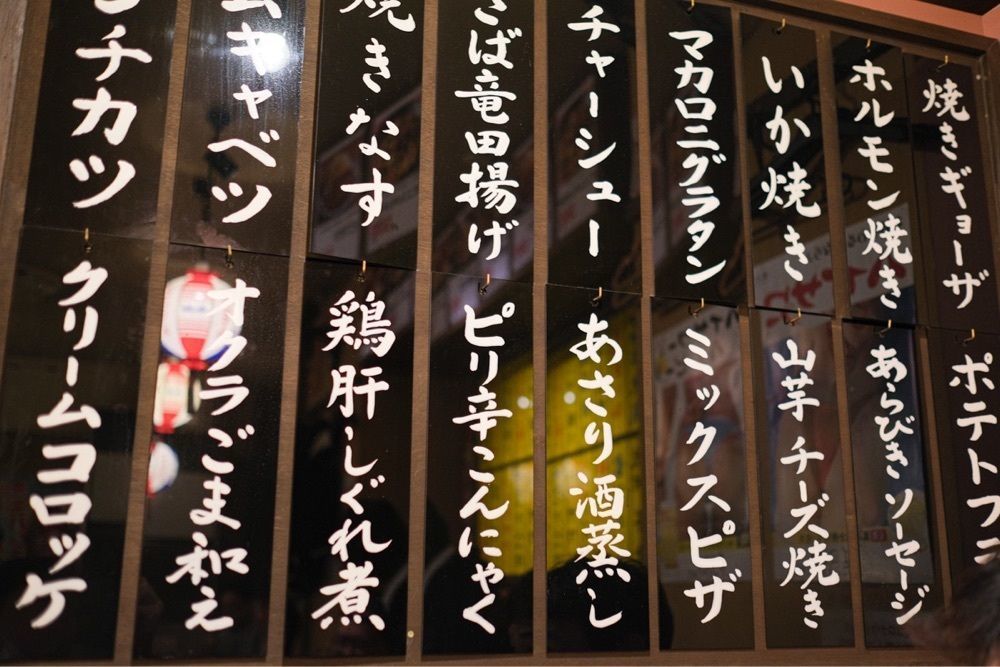 焼きギョーザ
ホルモン焼き
いか焼き
マカロニグラタン
チャーシュー
さば竜田揚げ
焼きなす
ムキャベツ
チカツ
ポテトフラ
あらびきソーセージ
山芋チーズ焼き
ミックスピザ
あさり酒蒸し
ピリ辛こんにゃく
鶏肝しぐれ煮
オクラごま和え
クリームコロッケ